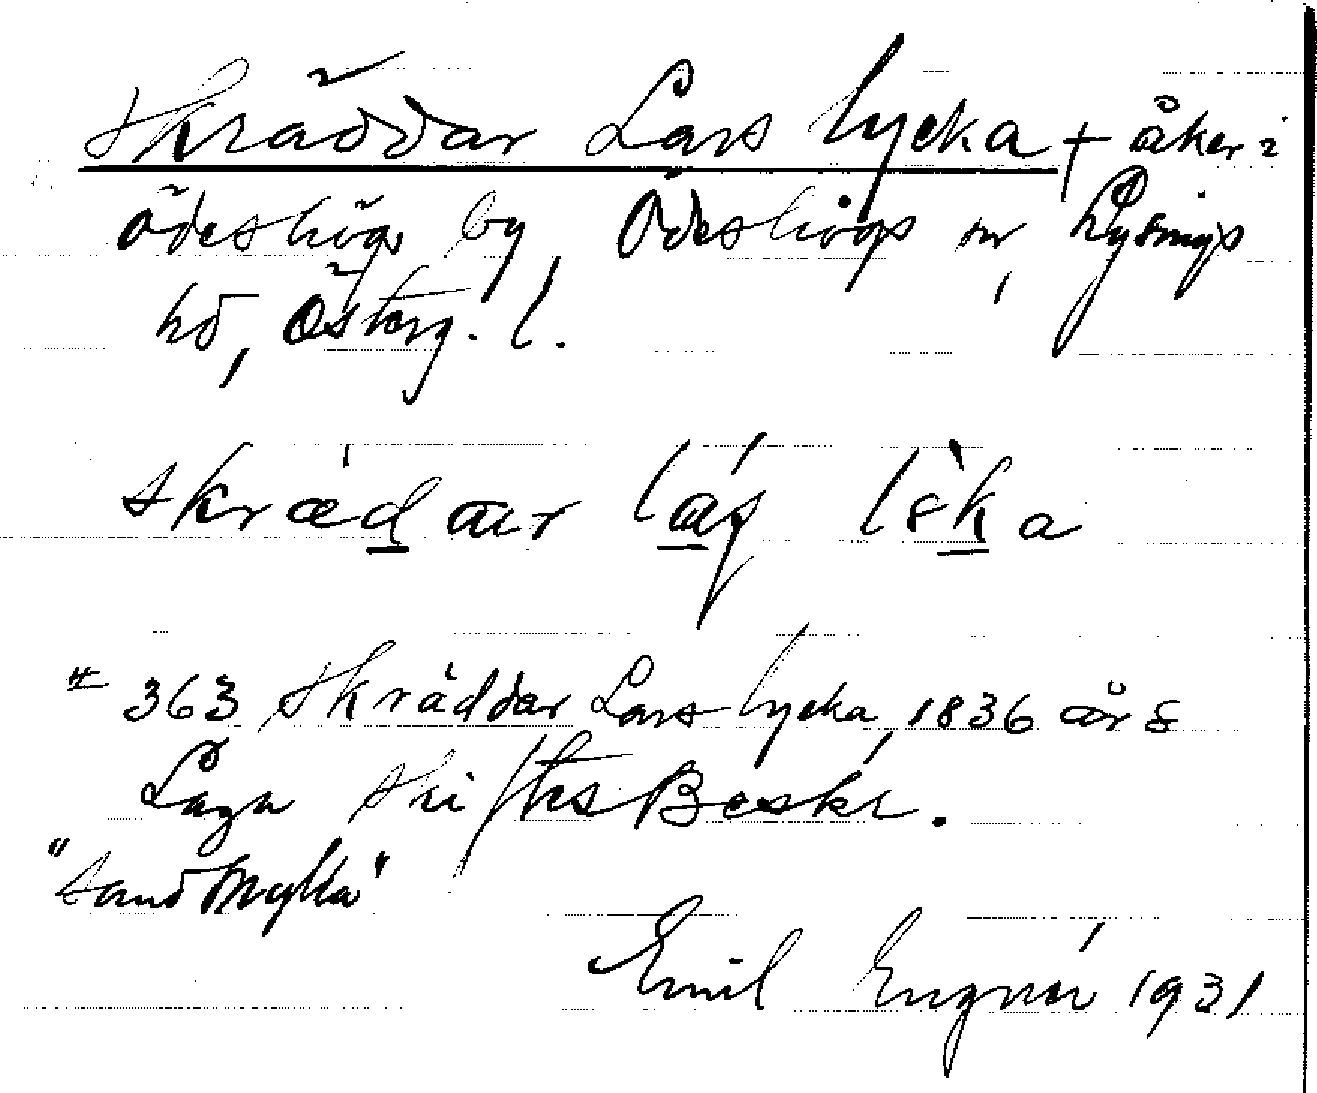 Skräddar Lars lycka + åker i
Ödeshögs by, Ödeshögs sn, Lysings
hd, Österg. l.
skrædar las løka
# 363 Skräddar Lars lycka, 1836 års
Laga Skiftes Beskr.
"Sandmylla"
Emil Engnér 1931